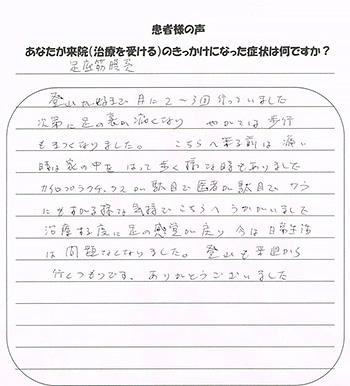 患者様の声
あなたが来院(治療を受ける)のきっかけになった症状は何ですか？
足底筋膜炎
登山が好きで月に2〜3回行っていました
次第に足の裏が痛くなり やがては歩行
もきつくなりました。 こちらへ来る前は痛い
時は家の中をはって歩く様な時もありました
カイロプラクティックスが駄目で医者が駄目で ワラ
にもすがる様な気持でこちらへうかがいました
治療する度に足の感覚が戻り今は日常生活
は問題なくなりました。 登山も 来週から
行くつもりです。ありがとうございました